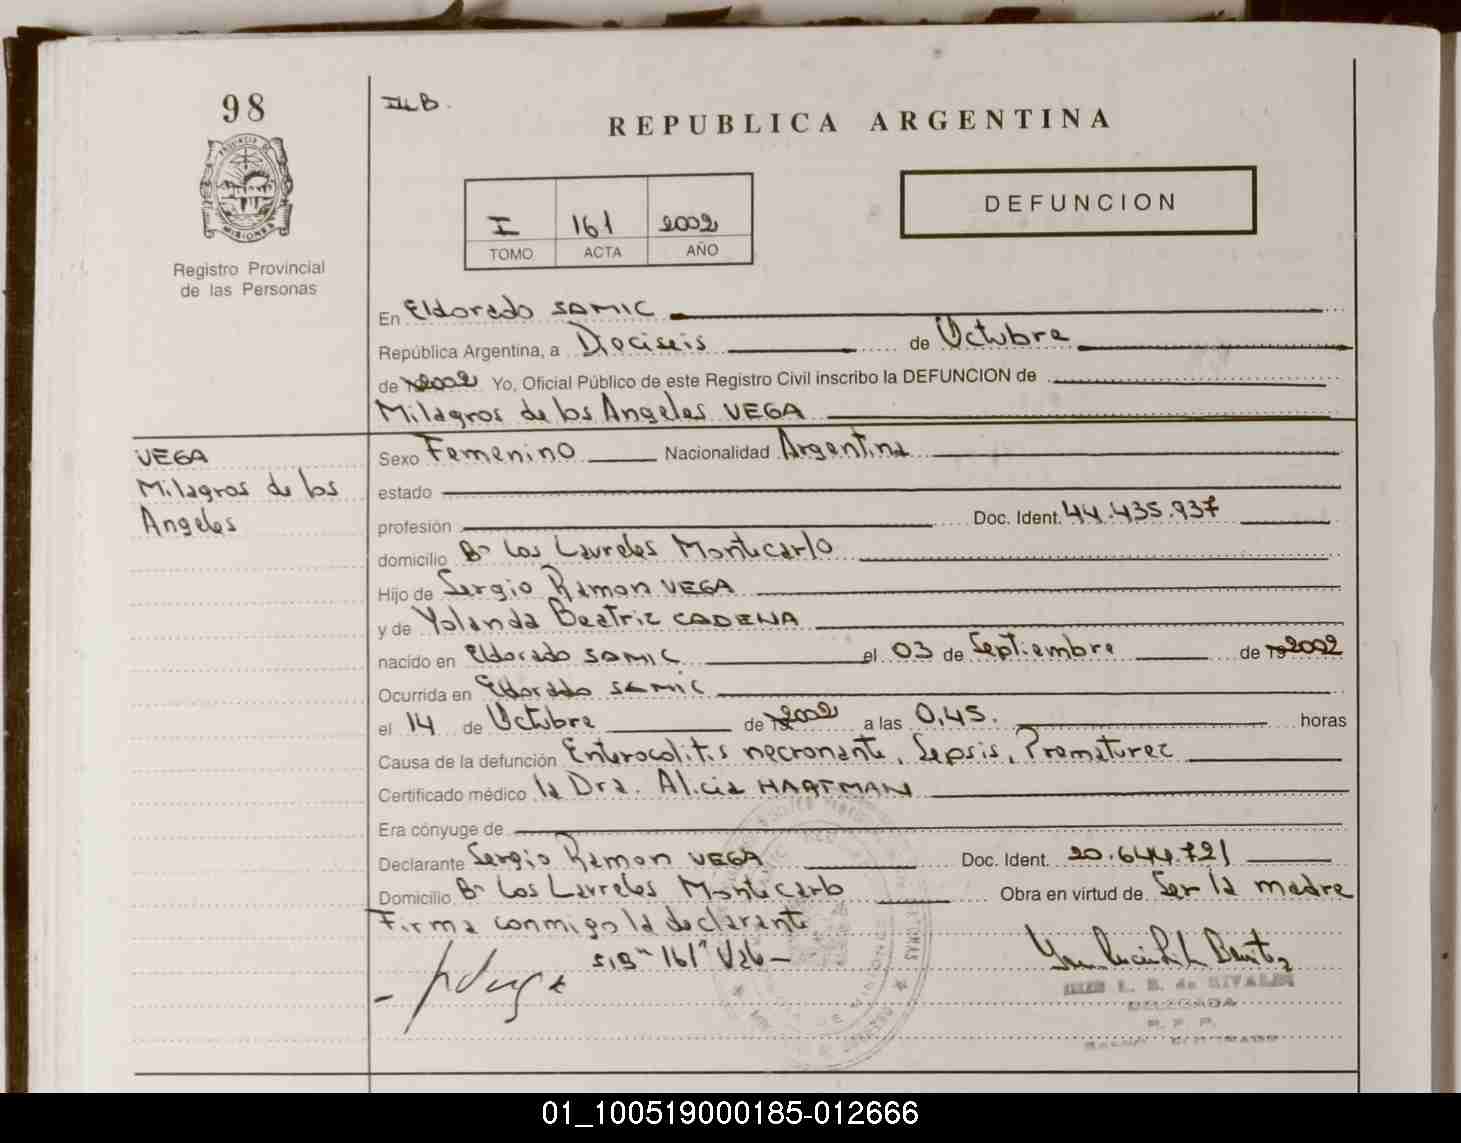 98
Registro Provincial
de las Personas
REPUBLICA ARGENTINA
I 161 2002
TOMO ACTA AÑO
DEFUNCION
En Eldorado SAMIC
República Argentina, a Dieciseis de Octubre
de 2002 Yo, Oficial Público de este Registro Civil inscribo la DEFUNCION de
Milagros de los Angeles VEGA
VEGA
Milagros de los
Angeles
Sexo Femenino Nacionalidad Argentina
estado
profesión Doc. Ident. 44.435.937
domicilio Bº Los Laureles Montecarlo
Hijo de Sergio Ramon VEGA
y de Yolanda Beatriz CADENA
nacido en Eldorado SAMIC el 03 de Septiembre de 2002
Ocurrida en Eldorado SAMIC
el 14 de Octubre de 2002 a las 0,45. horas
Causa de la defunción Enterocolitis necronante, Sepsis, Prematurez
Certificado médico la Dra. Alicia HARTMAN
Era cónyuge de
Declarante Sergio Ramon VEGA Doc. Ident. 20.644.721
Domicilio Bº Los Laureles Montecarlo Obra en virtud de Ser la madre
Firma conmigo la declarante
"161"
DELEGADA
01_100519000185-012666